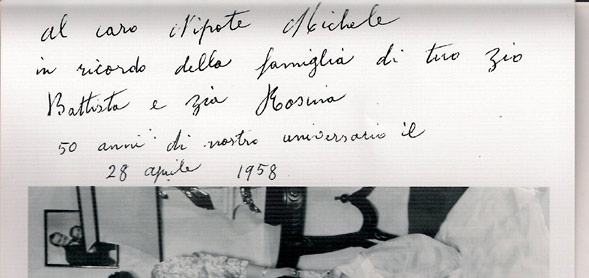 al caro Nipote Michele
in ricordo della famiglia di tuo zio
Battista e zia Rosina
50 anni di nostro universario il
28 aprile 1958